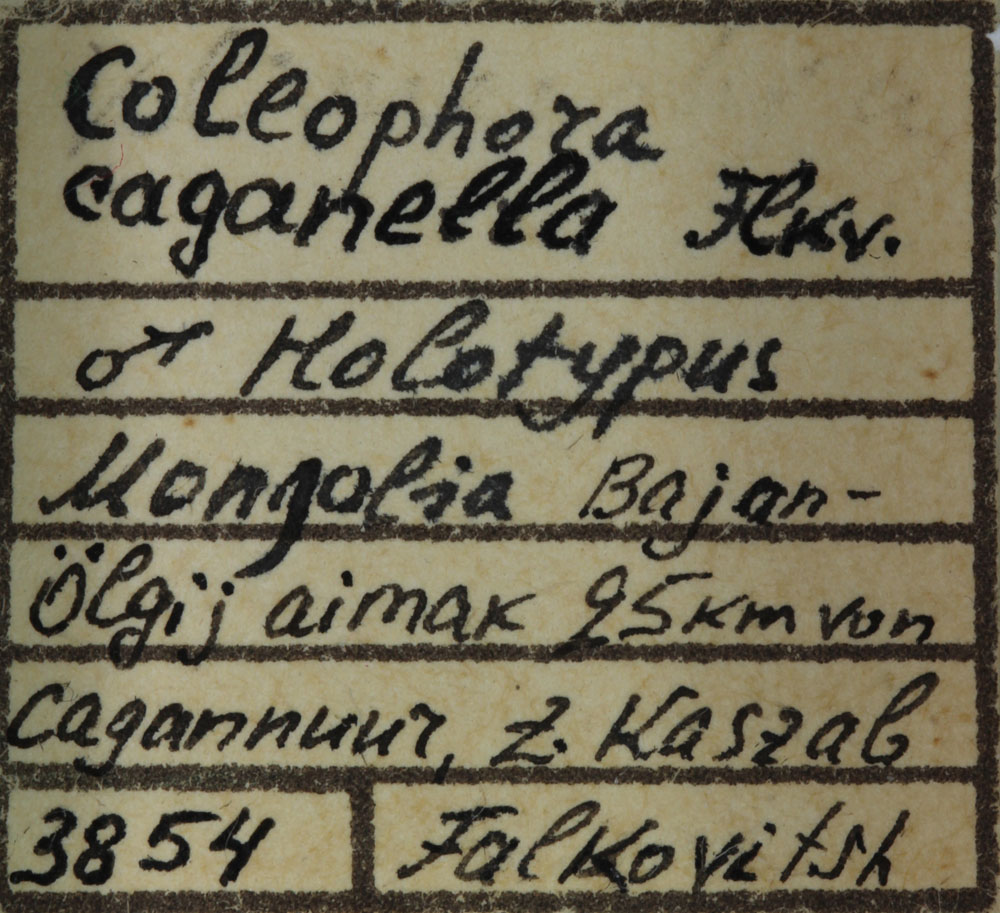 Coleophora
caganella Flkv.
♂ Holotypus
Mongolia Bajan-
Ölgij aimak 25km von
Cagannuur, Z. Kaszab
3854 Falkovitsh